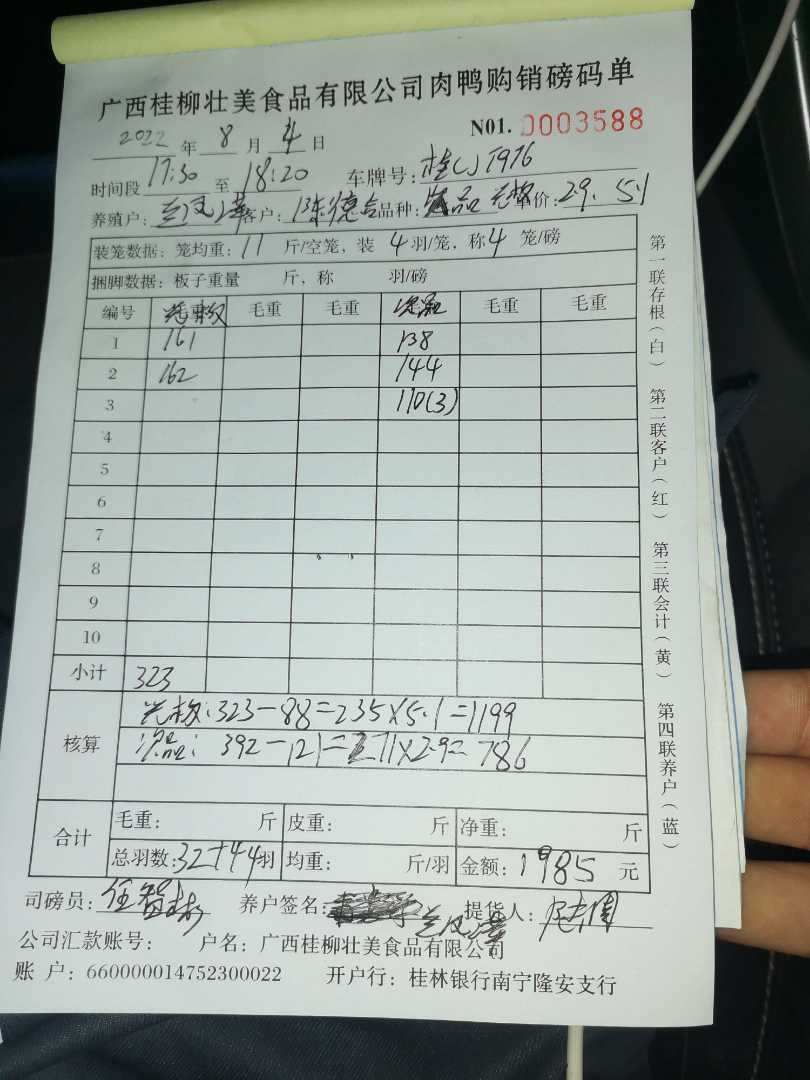 广西桂柳壮美食品有限公司肉鸭购销磅码单
2022 年 8 月 4 日 N01. 0003588
时间段 17:30 至 18:20 车牌号: 桂CJ1976
养殖户: 客户: 陈德 品种: 品 价: 29. 5.1
装笼数据: 笼均重: 11 斤/空笼, 装 4 羽/笼, 称 4 笼/磅
捆脚数据: 板子重量 斤, 称 羽/磅
编号 毛重 毛重 次品 毛重 毛重
1 161 138
2 162 144
3 110(3)
4
5
6
7
8
9
10
小计 323
核算
323-88=235×5.1=1199
次品: 392-121=271×2.9=786
合计
毛重: 斤 皮重: 斤 净重: 斤
总羽数: 32+44 羽 均重: 斤/羽 金额: 1985 元
司磅员: 养户签名: 提货人:
公司汇款账号: 户名: 广西桂柳壮美食品有限公司
账 户: 660000014752300022 开户行: 桂林银行南宁隆安支行
第一联存根(白) 第二联客户(红) 第三联会计(黄) 第四联养户(蓝)